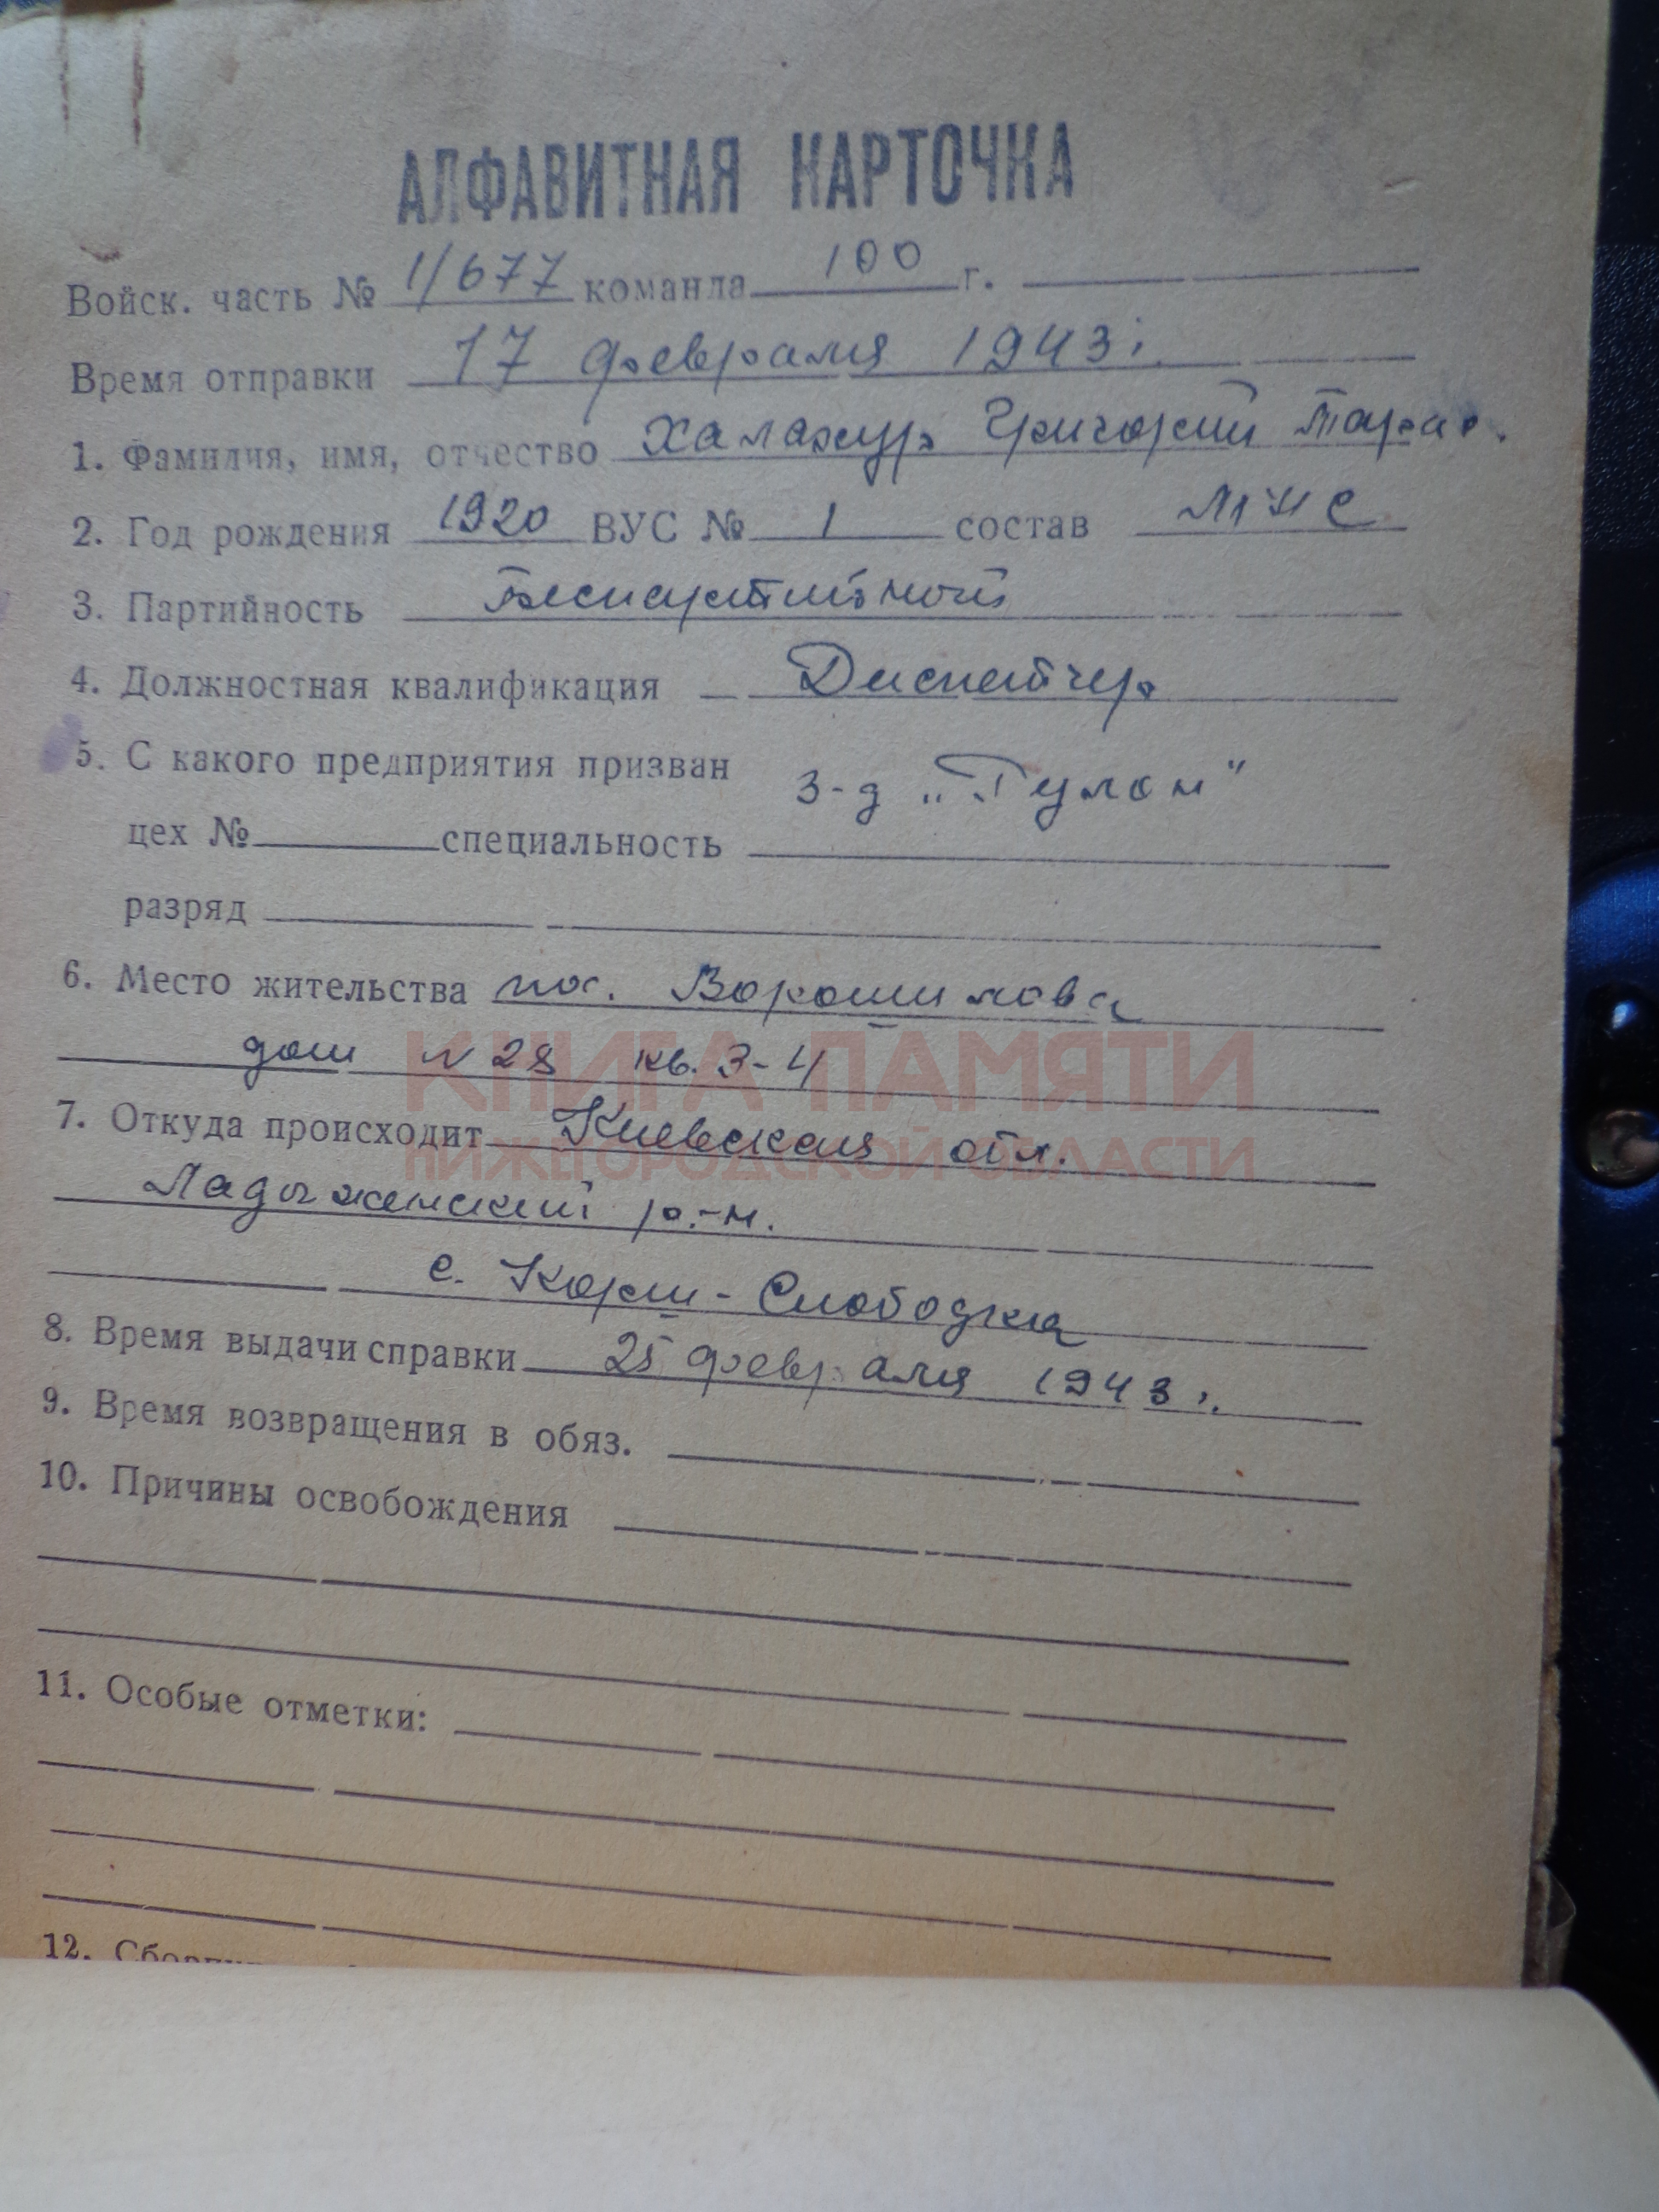 АЛФАВИТНАЯ КАРТОЧКА
Войск. часть № 1/677 команда 100 г.
Время отправки 17 февраля 1943 г.
1. Фамилия, имя, отчество Халажур Григорий Тарас.
2. Год рождения 1920 ВУС № 1 состав
3. Партийность Беспартийной
4. Должностная квалификация Диспетчер
5. С какого предприятия призван
з-д „Гулон"
цех № специальность
разряд
6. Место жительства пос. Ворошилова
дом № 28 кв. 3-4
КНИГА ПАМЯТИ
7. Откуда происходит Киевская обл.
НИЖЕГОРОДСКОЙ ОБЛАСТИ
Ладыженский р-н.
с. Корж-Слободка
8. Время выдачи справки 25 февраля 1943 г.
9. Время возвращения в обяз.
10. Причины освобождения
11. Особые отметки:
12.